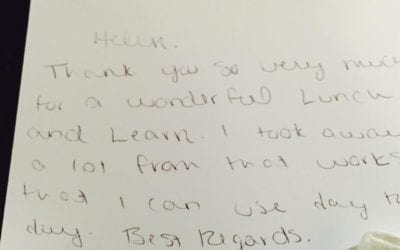 Helen.
Thank you so very much
for a wonderful Lunch
and Learn. I took away
a lot from that works
that I can use day t
day. Best Regards.